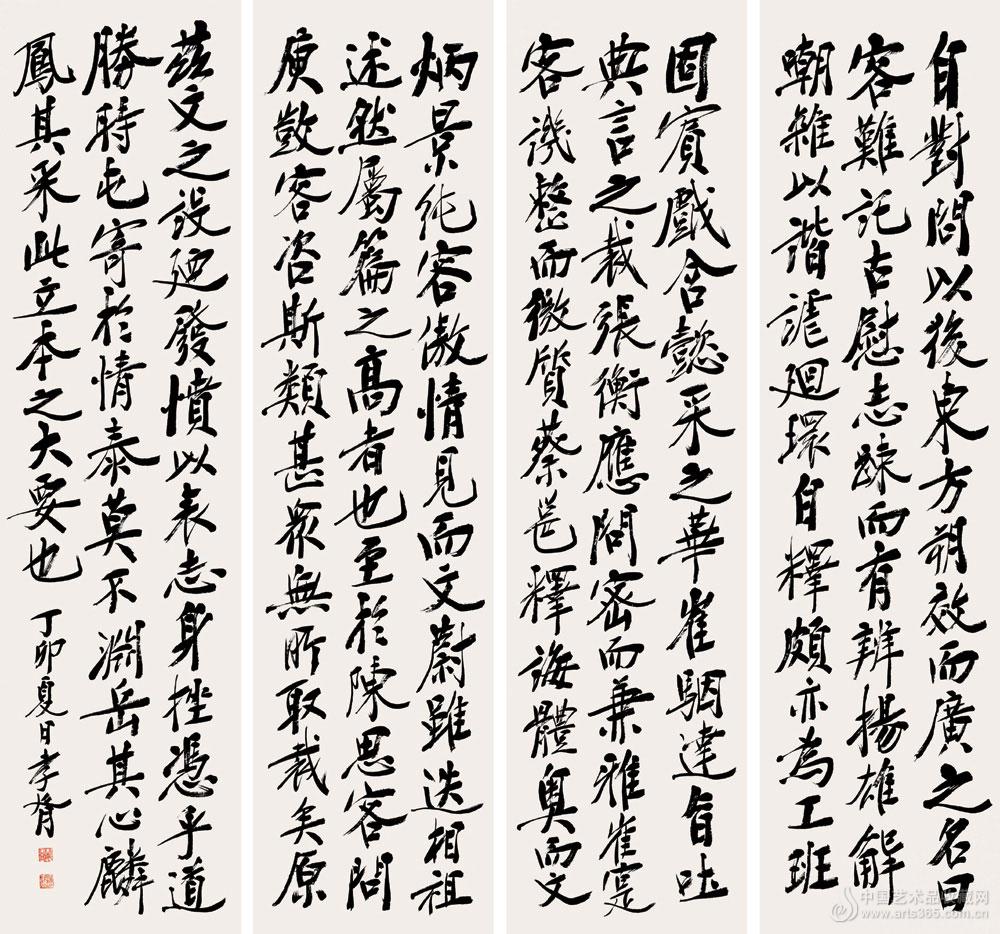 自對問以後東方朔效而廣之名曰
客難託古慰志疎而有辨揚雄解
嘲雜以諧謔迴環自釋頗亦為工班
固賓戲含懿采之華崔駰達旨吐
典言之裁張衡應問密而兼雅崔寔
客譏整而微質蔡邕釋誨體奧而文
炳景純客傲情見而文蔚雖迭相祖
述然屬篇之高者也至於陳思客問
庾敳客咨斯類甚衆無所取裁矣原
茲文之設迺發憤以表志身挫憑乎道
勝時屯寄於情泰莫不淵岳其心麟
鳳其采此立本之大要也 丁卯夏日孝胥
中国艺术品收藏网
www.arts365.com.cn